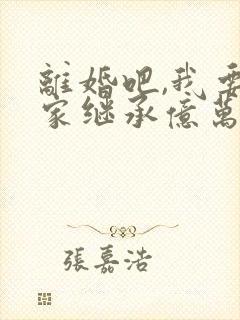 離婚吧,我要
家继承億萬
張嘉浩